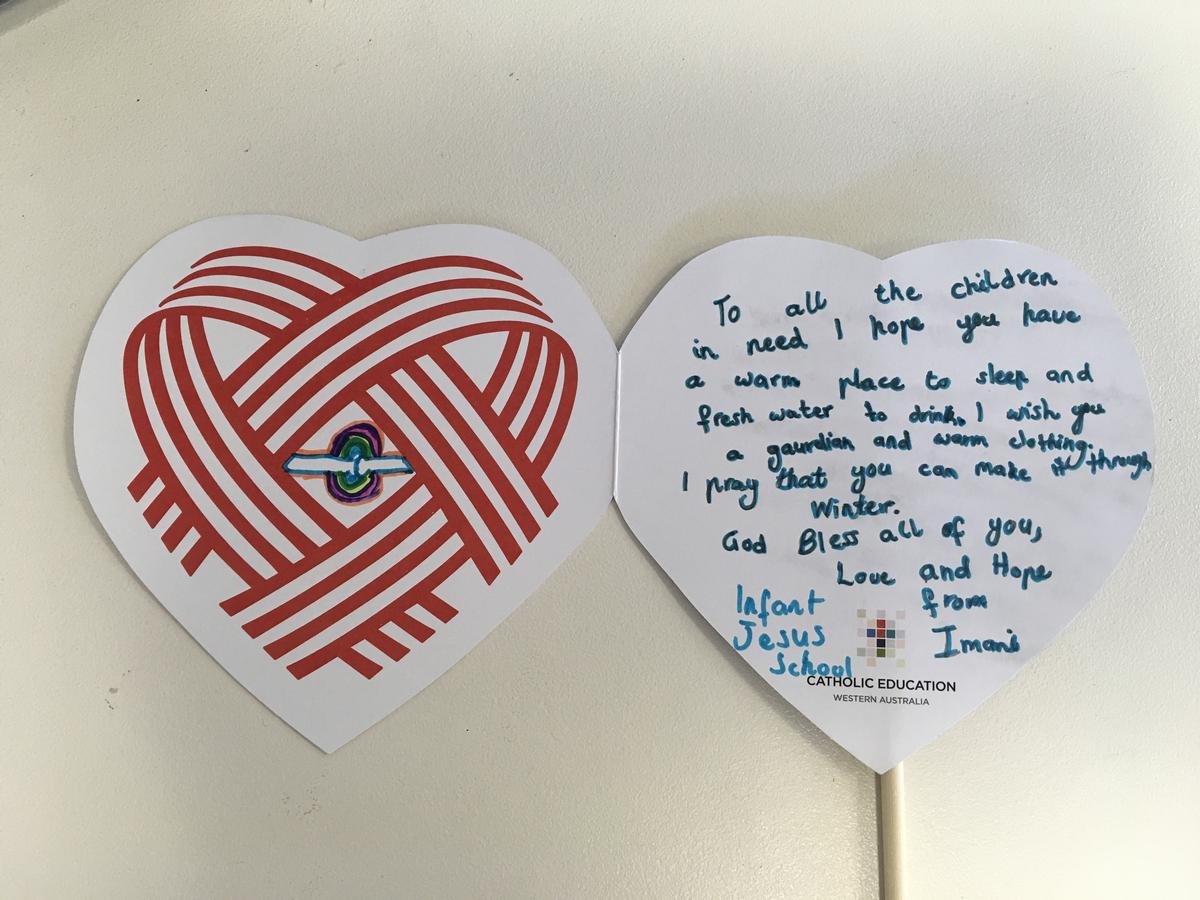 To all the children
in need I hope you have
a warm place to sleep and
fresh water to drink, I wish you
a gaurdian and warm clothing.
I pray that you can make it through
Winter.
God Bless all of you,
Love and Hope
from
Imani
Infant
Jesus
School
CATHOLIC EDUCATION
WESTERN AUSTRALIA